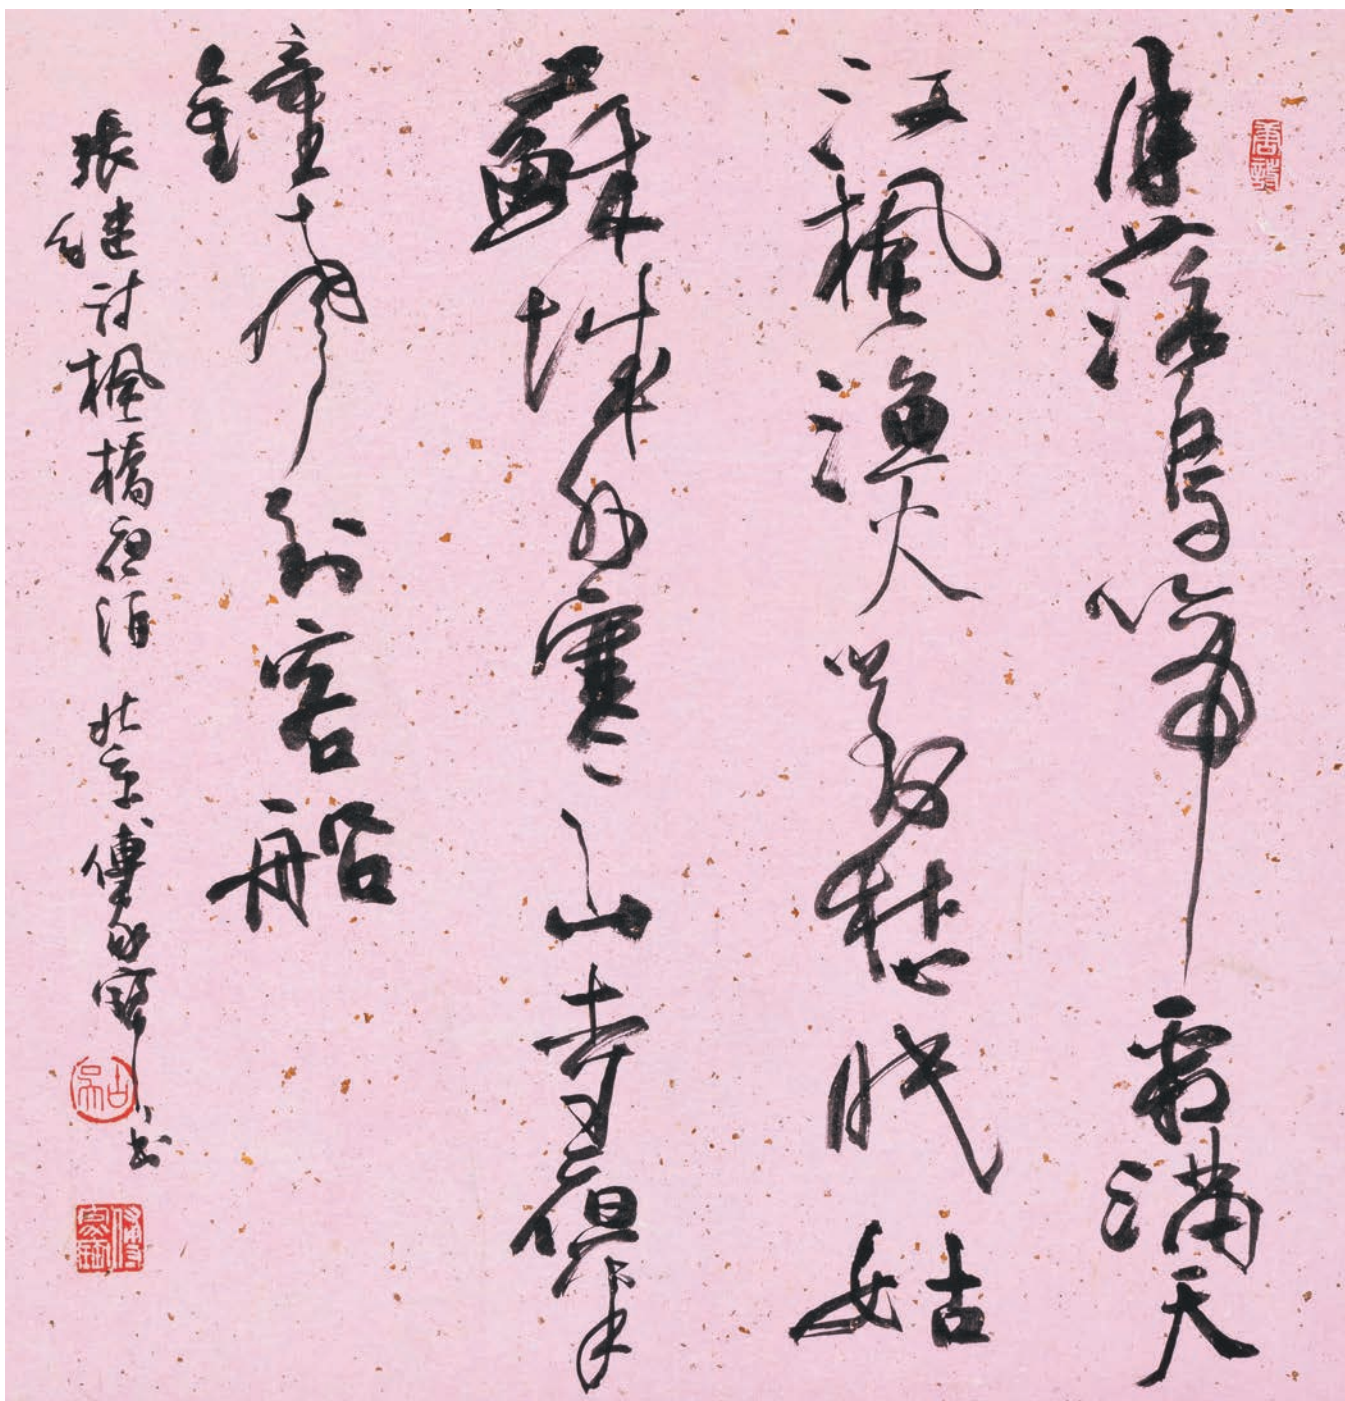 月落烏啼霜滿天
江楓漁火對愁眠姑
蘇城外寒山寺夜半
鐘聲到客船
張继诗楓橋夜泊 北京傅家寶书